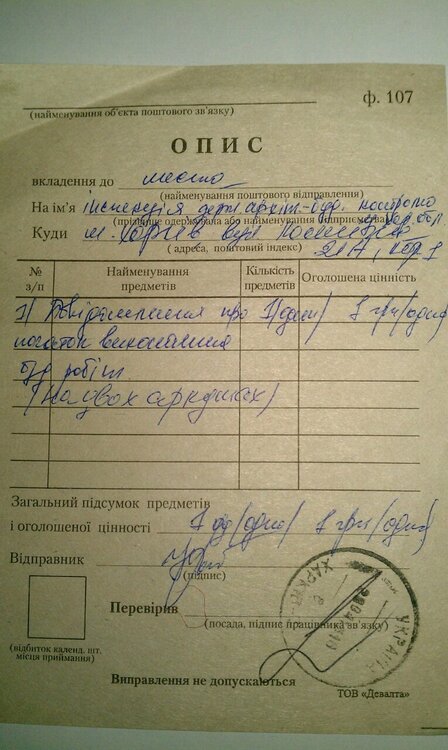 ф. 107
(найменування об'єкта поштового зв'язку)
ОПИС
вкладення до листа
(найменування поштового відправлення)
На ім'я інспекція держ. архіт-буд. контролю
(прізвище одержувача або найменування підприємства)
Куди м. Харків вул
(адреса, поштовий індекс)
№ з/п Найменування предметів Кількість предметів Оголошена цінність
1/ Повідомлення про 1/один/ 1 грн/одна/
початок виконання
буд робіт
/на двох аркушах/
Загальний підсумок предметів
і оголошеної цінності 1 од/один/ 1 грн/одна/
Відправник
(підпис)
Перевірив
(посада, підпис працівника зв'язку)
(відбиток календ. шт. місця приймання)
УКРАЇНА
Виправлення не допускаються
ТОВ «Девалта»